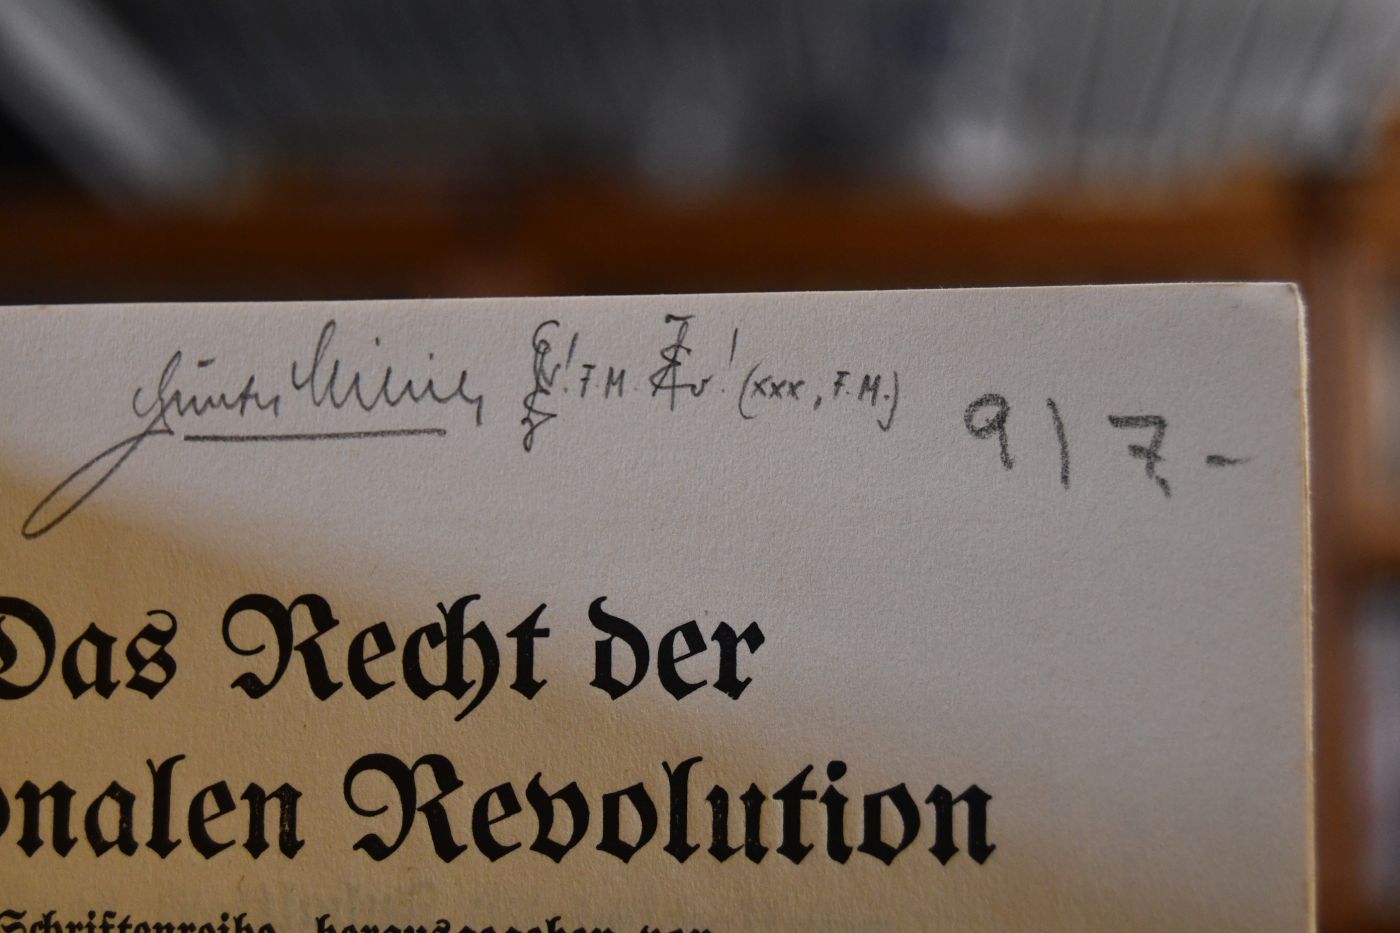 Günter F.M. (xxx, F.M.) 9 | 7-
Das Recht der
onalen Revolution
Schriftenreihe, herausgegeben von